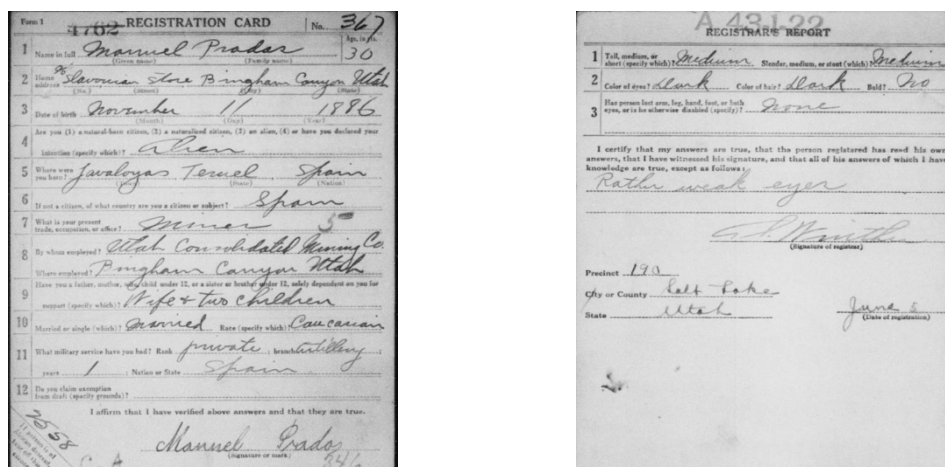 Form 1
4762 REGISTRATION CARD No. 367
1 Name in full Manuel Pradas Age, in yrs. 30
(Given name) (Family name)
2 Home address % Slavonian Store Bingham Canyon Utah
(No.) (Street) (City) (State)
3 Date of birth November 11 1886
(Month) (Day) (Year)
4 Are you (1) a natural-born citizen, (2) a naturalized citizen, (3) an alien, (4) or have you declared your
intention (specify which)? Alien
5 Where were you born? Javaloyas Teruel Spain
(Town) (State) (Nation)
6 If not a citizen, of what country are you a citizen or subject? Spain
7 What is your present trade, occupation, or office? Miner 5
8 By whom employed? Utah Consolidated Mining Co.
Where employed? Bingham Canyon Utah
9 Have you a father, mother, wife, child under 12, or a sister or brother under 12, solely dependent on you for
support (specify which)? Wife + two children
10 Married or single (which)? Married Race (specify which)? Caucasian
11 What military service have you had? Rank private ; branch artillery ;
years 1 ; Nation or State Spain
12 Do you claim exemption from draft (specify grounds)?
I affirm that I have verified above answers and that they are true.
2558
Manuel Pradas
(Signature or mark)
A 43-1-22
REGISTRAR'S REPORT
1 Tall, medium, or short (specify which)? Medium Slender, medium, or stout (which)? Medium
2 Color of eyes? Dark Color of hair? Dark Bald? No
3 Has person lost arm, leg, hand, foot, or both eyes, or is he otherwise disabled (specify)? None
I certify that my answers are true, that the person registered has read his own
answers, that I have witnessed his signature, and that all of his answers of which I have
knowledge are true, except as follows:
Rather weak eyes
(Signature of registrar)
Precinct 190
City or County Salt Lake
State Utah
June 5
(Date of registration)